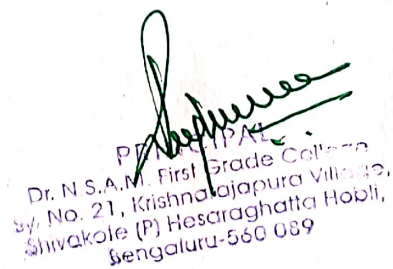 PRINCIPAL
Dr. N.S.A.M. First Grade College
Sy. No. 21, Krishnarajapura Village,
Shivakote (P) Hesaraghatta Hobli,
Bengaluru-560 089